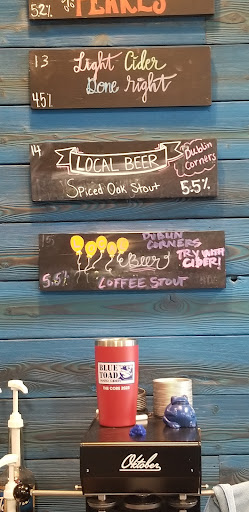 PEARLS
5.2%
13
Light Cider
Done right
4.5%
14
LOCAL BEER
Dublin
Corners
Spiced Oak Stout
5.5%
15
DUBLIN
CORNERS
Beer
TRY WITH
CIDER!
5.5%
COFFEE STOUT
BLUE
TOAD
HARD CIDER
THE CORE BEER
Oktober